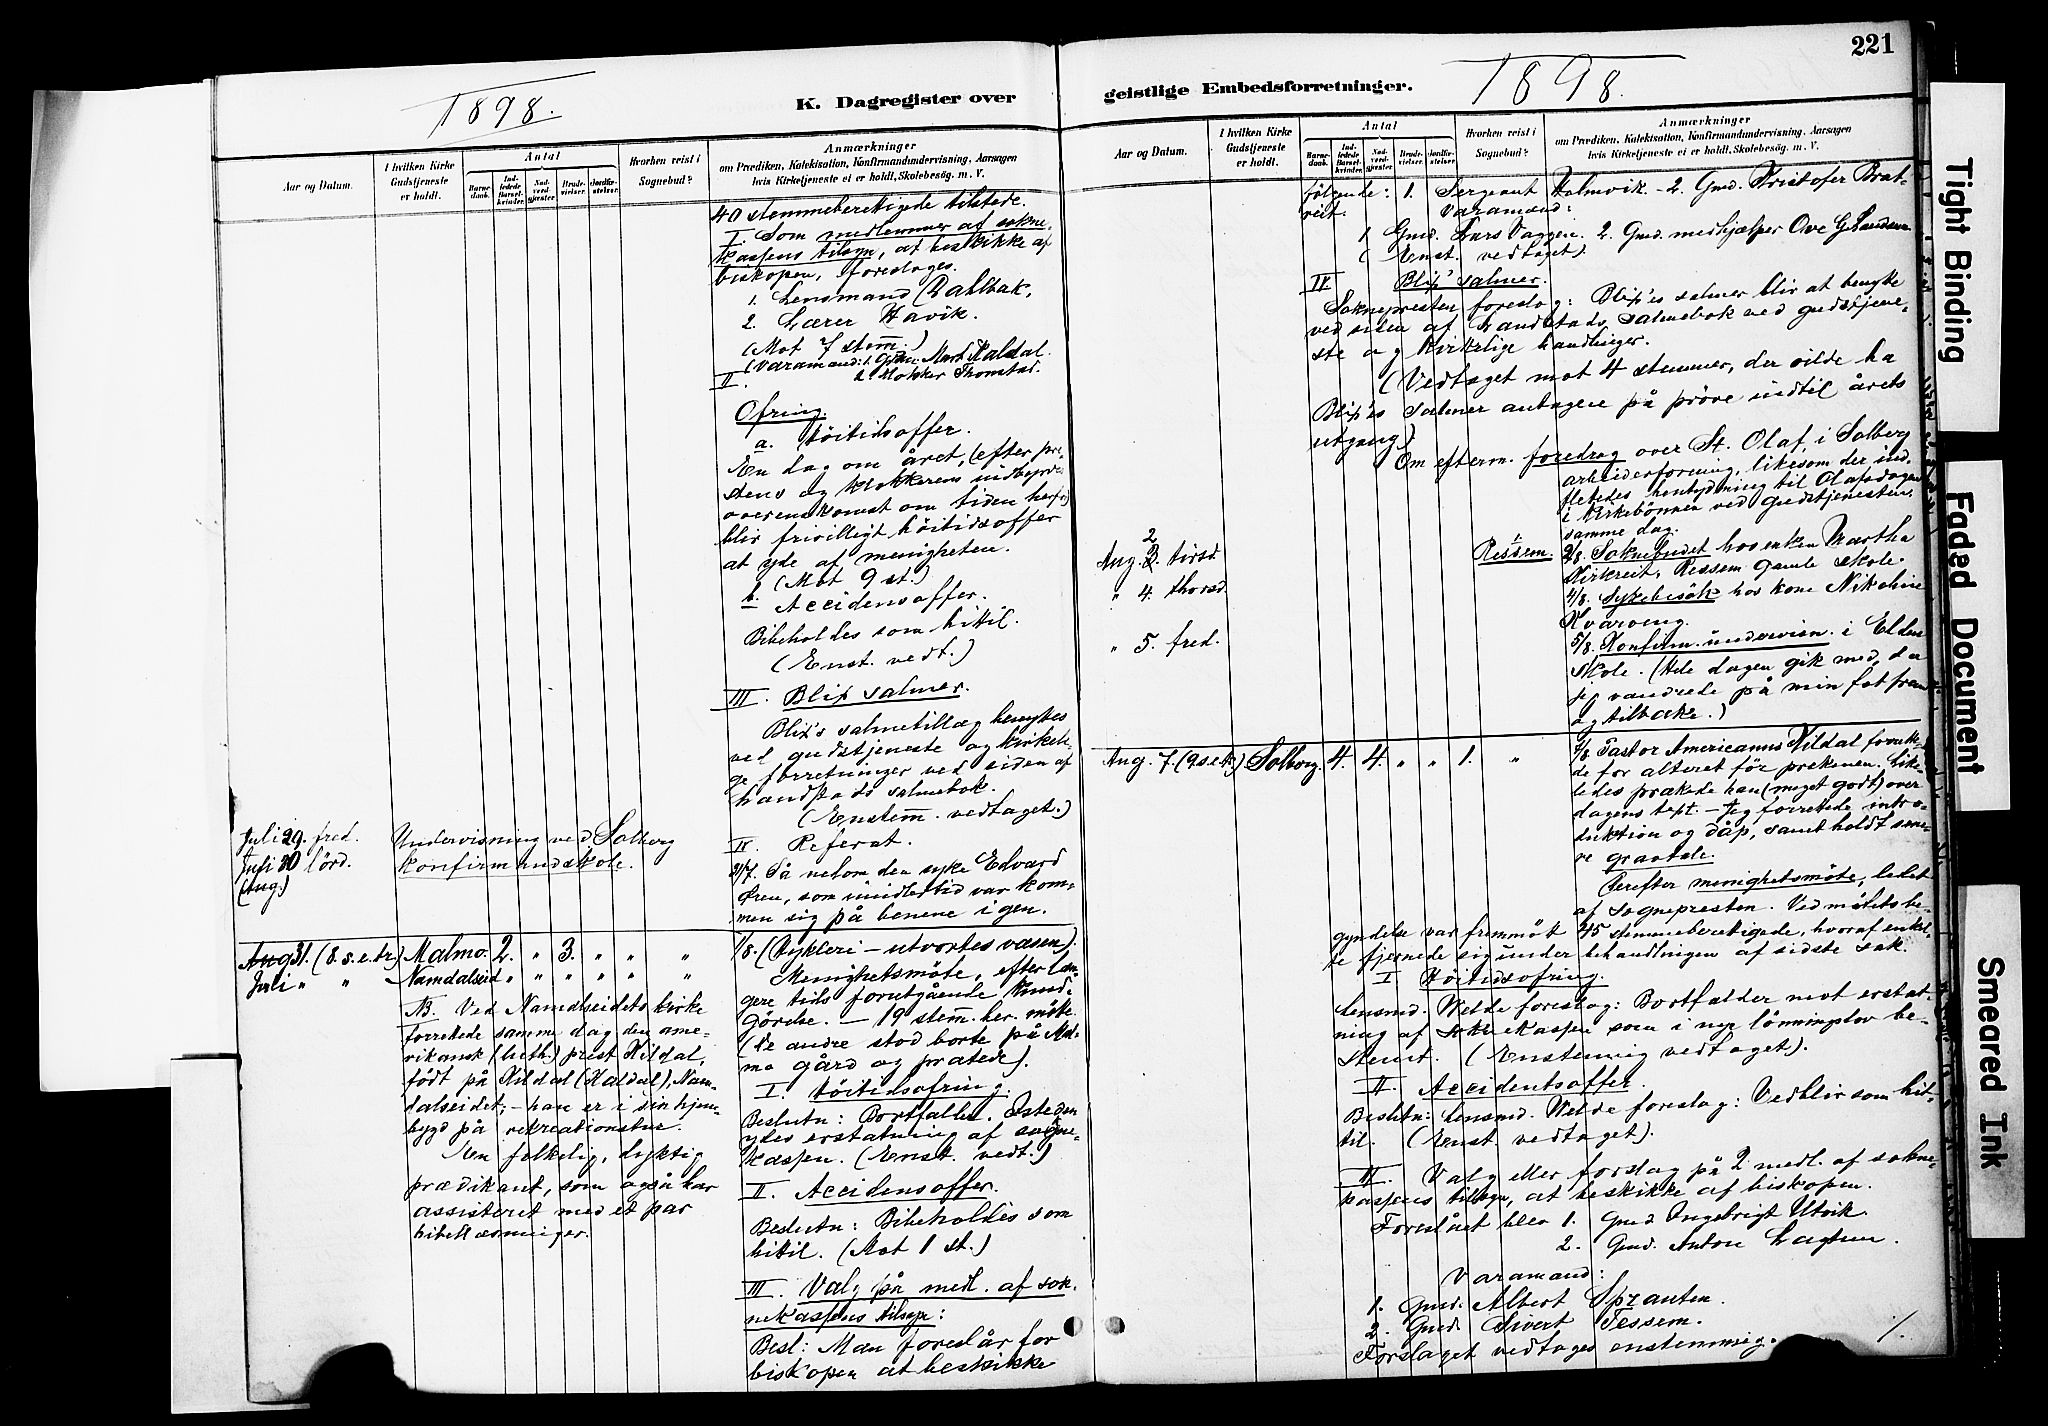 221
1898.
K. Dagregister over
geistlige Embedsforretninger.
1898.
Aar og Datum.
I hvilken Kirke Gudstjeneste er holdt.
Antal
Barnedaab.
Indledede Barselkvinder.
Nadverdgjester.
Brudevielser.
Jordfæstelser.
Hvorhen reist i Sognebud?
Anmærkninger
om Prædiken, Katekisation, Konfirmandundervisning, Aarsagen
hvis Kirketjeneste ei er holdt, Skolebesøg. m. V.
40 stemmeberettigede tilstede.
I. Som medlemmer af sokne-
kassens tilsyn, at beskikke af
biskopen, foreslages.
1. Lensmand Dahlbak,
2. Lærer Havik.
(Mot 7 stem.)
(Varamænd: 1. Grdm. Mart. Kaldal.
2. Klokker Thomstad.
II.
Ofring.
a. Höitidsoffer.
En dag om året, (efter pre-
stens og klokkerens indbyrdes
overenskomst om tiden herfor)
blir frivilligt höitidsoffer
at yde af menigheten.
(Mot 9 st.)
b. Accidensoffer.
Bibeholdes som hittil.
(Enst. vedt.)
III. Blix salmer.
Blix's salmetillæg benyttes
ved gudstjeneste og kirkeli-
ge forretninger ved siden af
Landstads salmebok.
(Enstem. vedtaget.)
IV. Referat.
Juli 29. fred. Undervisning ved Solberg
Juli 30 lörd. konfirmandskole.
(Aug.)
31/7. Så nelom den syke Edvard
Ören, som imidlertid var kom-
men sig på benene igen.
Aug 31. (8. s. e. tr.) Malmo. 2. " 3. " " "
Juli " " Namdalseid " " " " " "
NB. Ved Namdalseidets kirke
forrettede samme dag den ame-
rikansk (luth.) prest Kildal,
född på Kildal (Kaldal), Nam-
dalseidet; – han er i sin hjem-
bygd på rekreationstur.
En folkelig, dyktig
prædikant, som også har
assisteret med et par
bibellæsninger.
1/8. (Cykleri – utvortes væsen).
Menighetsmöte, efter læn-
gere tids forutgående kund-
görelse. – 19 stem. ber. mötte
(De andre stod borte på Mal-
mo gård og pratede).
I. Höitidsofring.
Beslutn: Bortfaller. Isteden
ydes erstatning af sogne-
kassen. (Enst. vedt.)
II. Accidensoffer.
Beslutn: Bibeholdes som
hittil. (Mot 1 st.)
III. Valg på medl. af sok-
nekassens tilsyn:
Besl: Man foreslår for
biskopen at beskikke
Aar og Datum.
I hvilken Kirke Gudstjeneste er holdt.
Antal
Barnedaab.
Indledede Barselkvinder.
Nadverdgjester.
Brudevielser.
Jordfæstelser.
Hvorhen reist i Sognebud?
Anmærkninger
om Prædiken, Katekisation, Konfirmandundervisning, Aarsagen
hvis Kirketjeneste ei er holdt, Skolebesøg. m. V.
følgende: 1. Sergeant Holmvik. – 2. Gmd. Kristofer Brat-
reit. Varamænd:
1 Gmd. Lars Vaggen. 2. Gmd. medhjælper Ove G.
(Enst. vedtaget).
IV Blix' salmer.
Soknepresten foreslog: Blix'es salmer blir at benytte
ved siden af Landstads salmebok ved gudstjene-
ste og kirkelige handlinger.
(Vedtaget mot 4 stemmer, der vilde ha
Blix'es salmer antagen på pröve indtil årets
utgang)
Om efterm. foredrag over St. Olaf, i Solberg
arbeiderforening, likesom der ind-
flettedes hentydning til Olafsdagen
i kirkebönnen ved gudstjenesten
samme dag.
2
Aug. 3. tirsd. Ressem. 2/8. Soknebudet hos enken Martha
Kirkreit, Ressem gamle skole.
" 4. thorsd. 4/8. Sykebesök hos kone Nikoline
Kvarving.
" 5. fred. 5/8. Konfirm. undervisn. i Elden
skole. (Hele dagen gik med, da
jeg vandrede på min fot fram
og tilbake.)
Aug. 7. (9. s. e. tr.) Solberg. 4. 4. " " 1. "
7/8. Pastor Americanus Kildal forrette-
de for alteret för prekenen. Like-
ledes prækede han (meget godt) over
dagens text. – Jeg forrettede intro-
duktion og dåp, samt holdt sene-
re gravtale.
Derefter menighetsmöte, ledet
af sognepresten. Ved mötets be-
gyndelse var fremmöt 45 stemmeberettigede, hvoraf enkel-
te fjernede sig under behandlingen af sidste sak.
I Höitidsofring.
Lensmd. Welde foreslog: Bortfalder mot erstat-
ning af soknekassen som i ny lönningslov be-
stemt. (Enstemmig vedtaget).
II. Accidentsoffer.
Beslutn: Lensmd. Welde foreslog: Vedblir som hit-
til. (Enst. vedtaget).
III. Valg eller forslag på 2 medl. af sokne-
kassens tilsyn, at beskikke af biskopen.
Foreslået blev 1. Gmd Ingebrigt Utvik.
2. Gmd. Anton
Varamænd:
1. Gmd. Albert Spranten.
2. Gmd. Sivert Tessem.
Forslaget vedtoges enstemmig.
Tight Binding
Faded Document
Smeared Ink